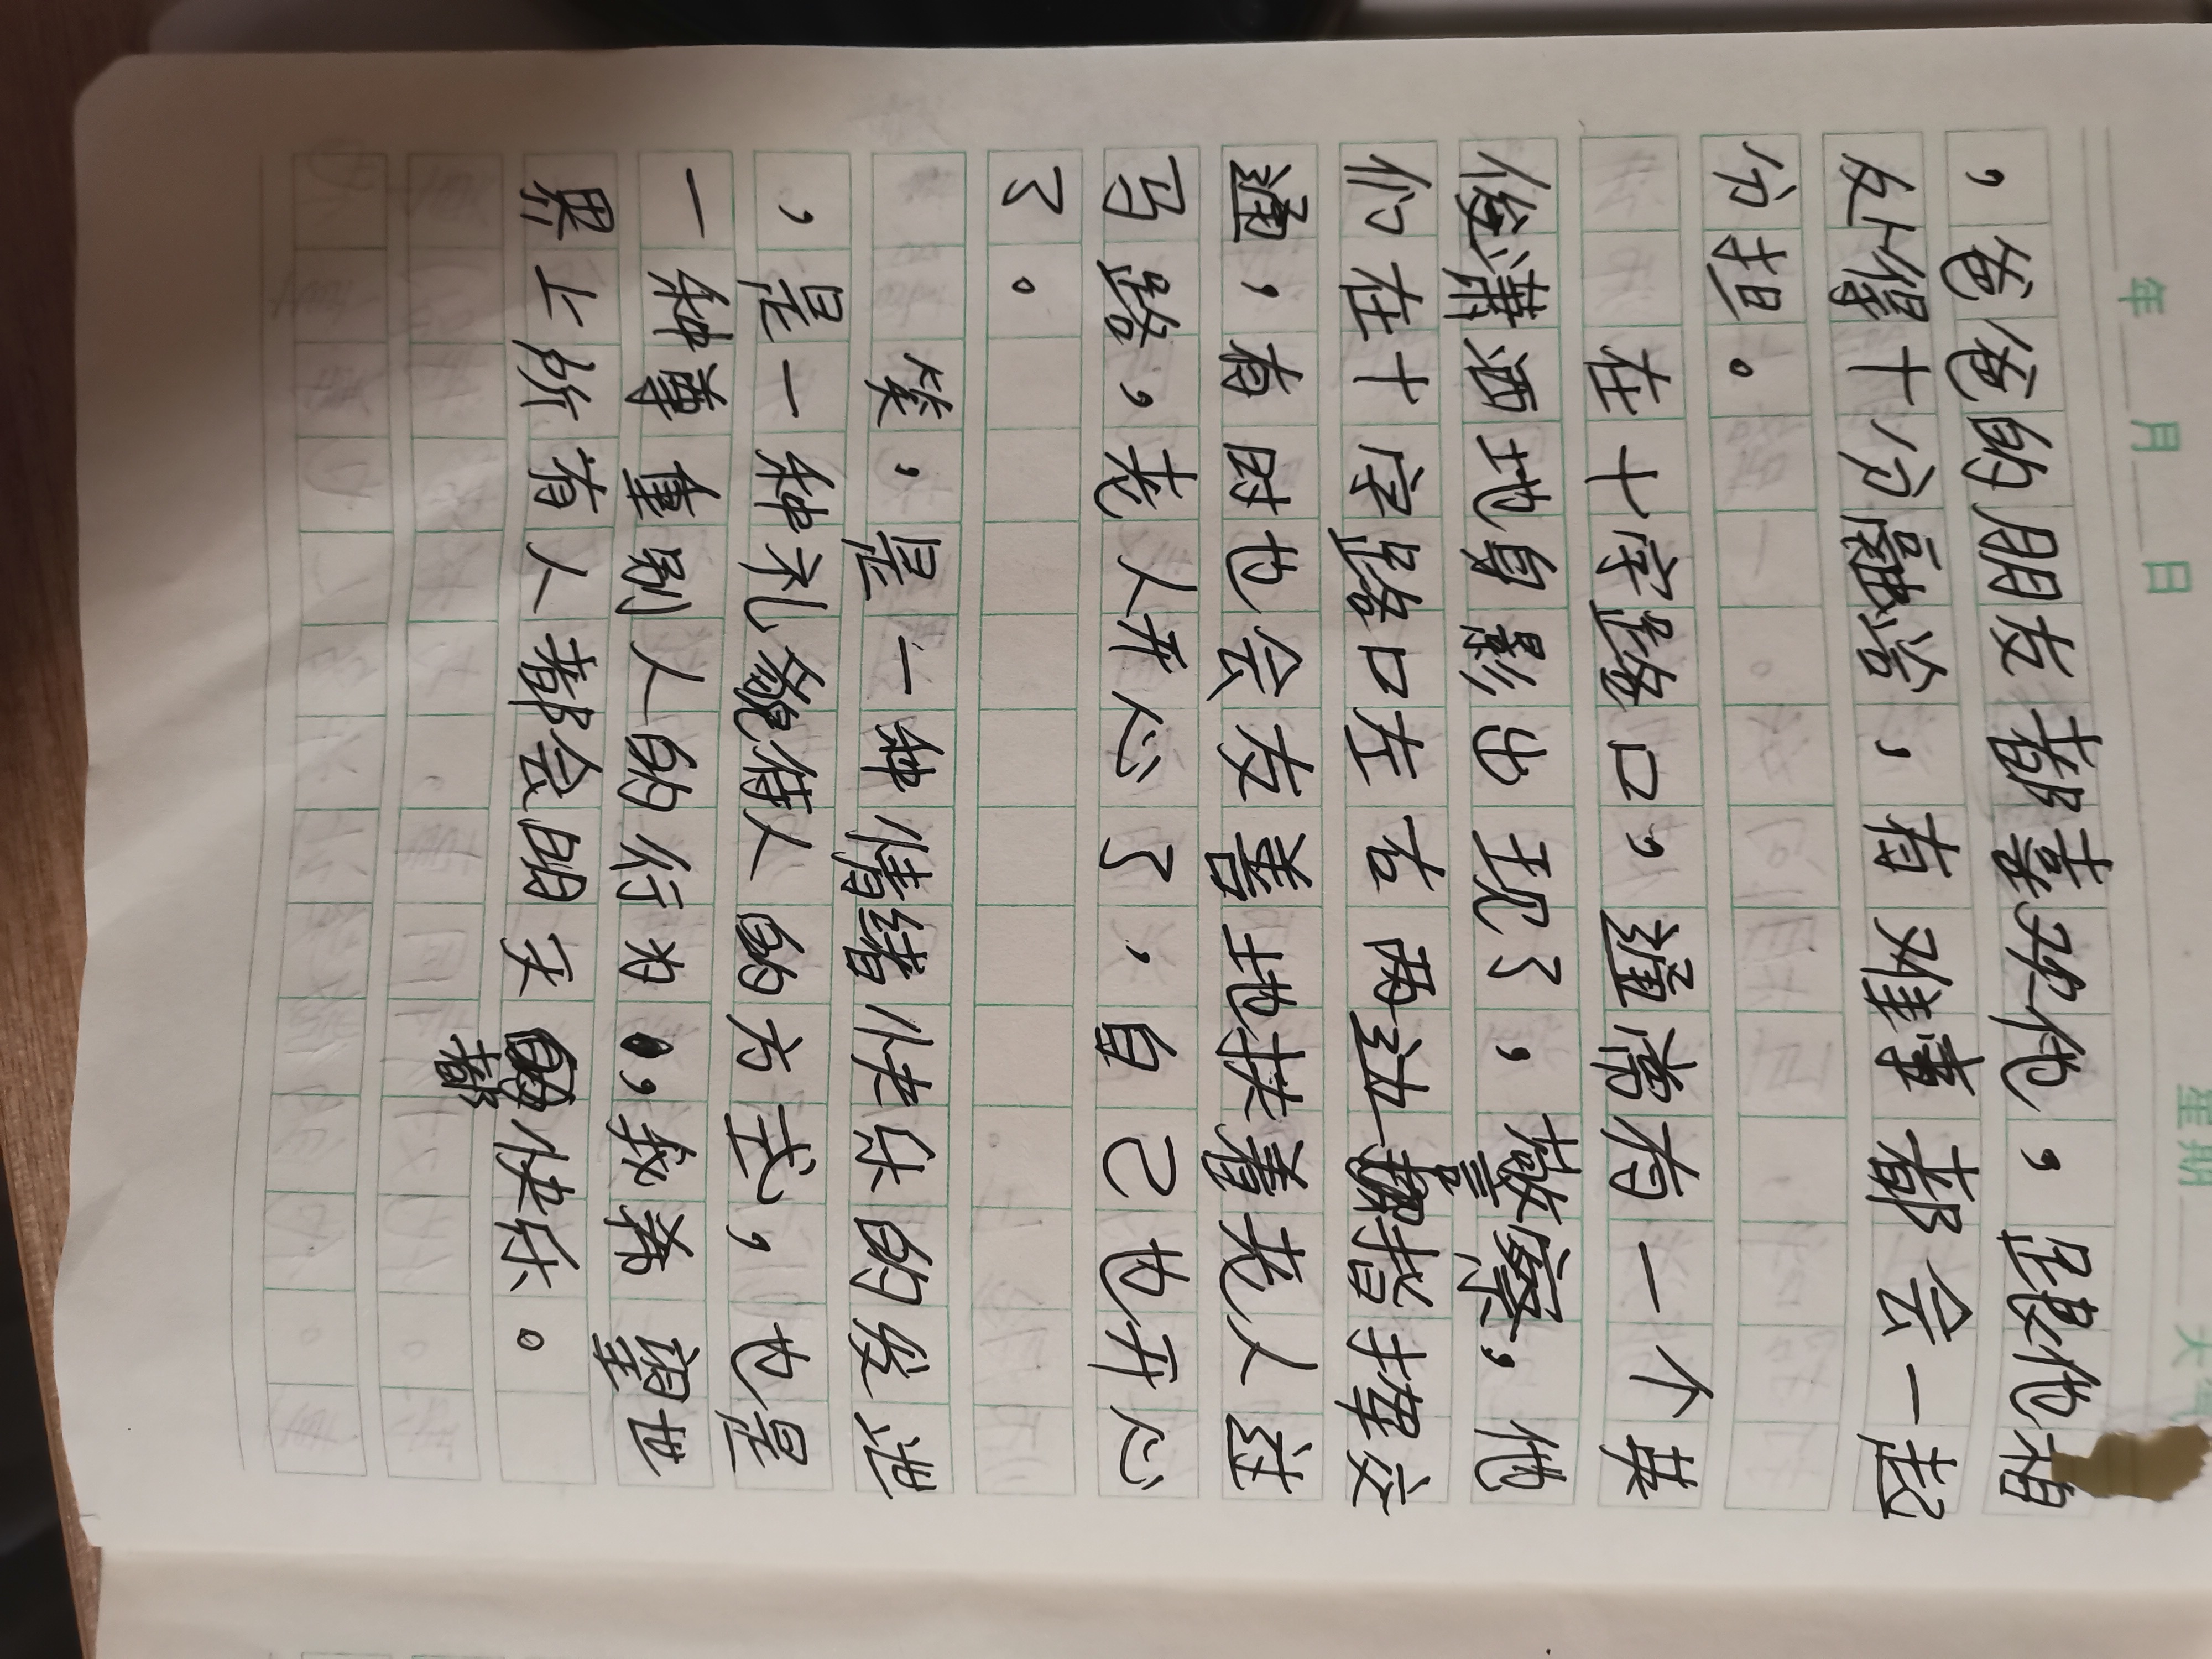 年 月 日 星期 天气
，爸爸的朋友都喜欢他，跟他相
处得十分融洽，有难事都会一起
分担。
在十字路口，通常有一个英
俊潇洒地身影出现了，警察，他
们在十字路口左右两边指挥交
通，有时也会友善地扶着老人过
马路，老人开心了，自己也开心
了。
笑，是一种情绪快乐的发泄
，是一种礼貌待人的方式，也是
一种尊重别人的行为，我希望世
界上所有人都会明天都快乐。